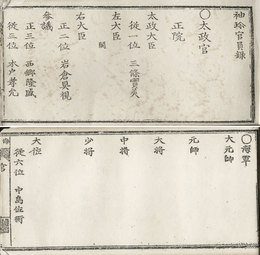 袖珍官員録
〇太政官
正院
太政大臣
從一位 三條實美
左大臣
闕
右大臣
正二位 岩倉具視
參議
正三位 西鄉隆盛
從三位 木戸孝允
〇海軍
大元帥
元帥
大將
中將
少將
大佐
從六位 中島佐衡
官